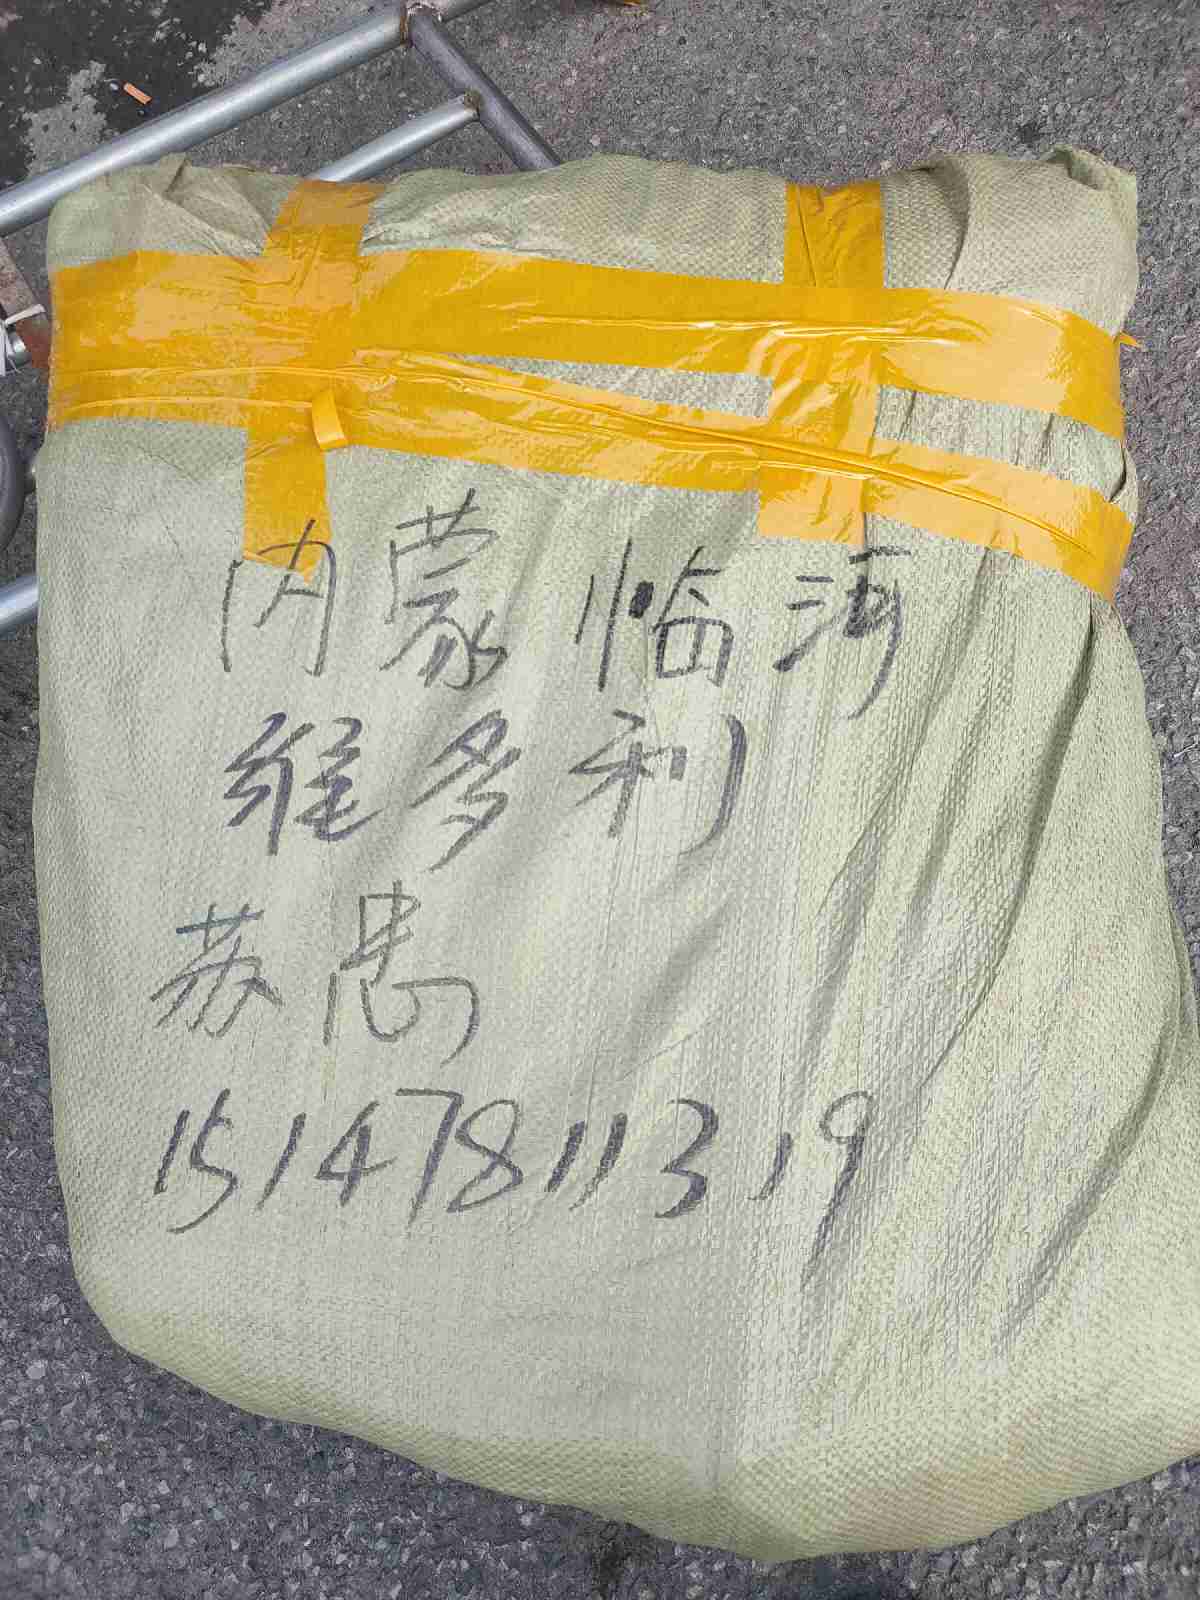 内蒙临河
维多利
苏惠
15147811319